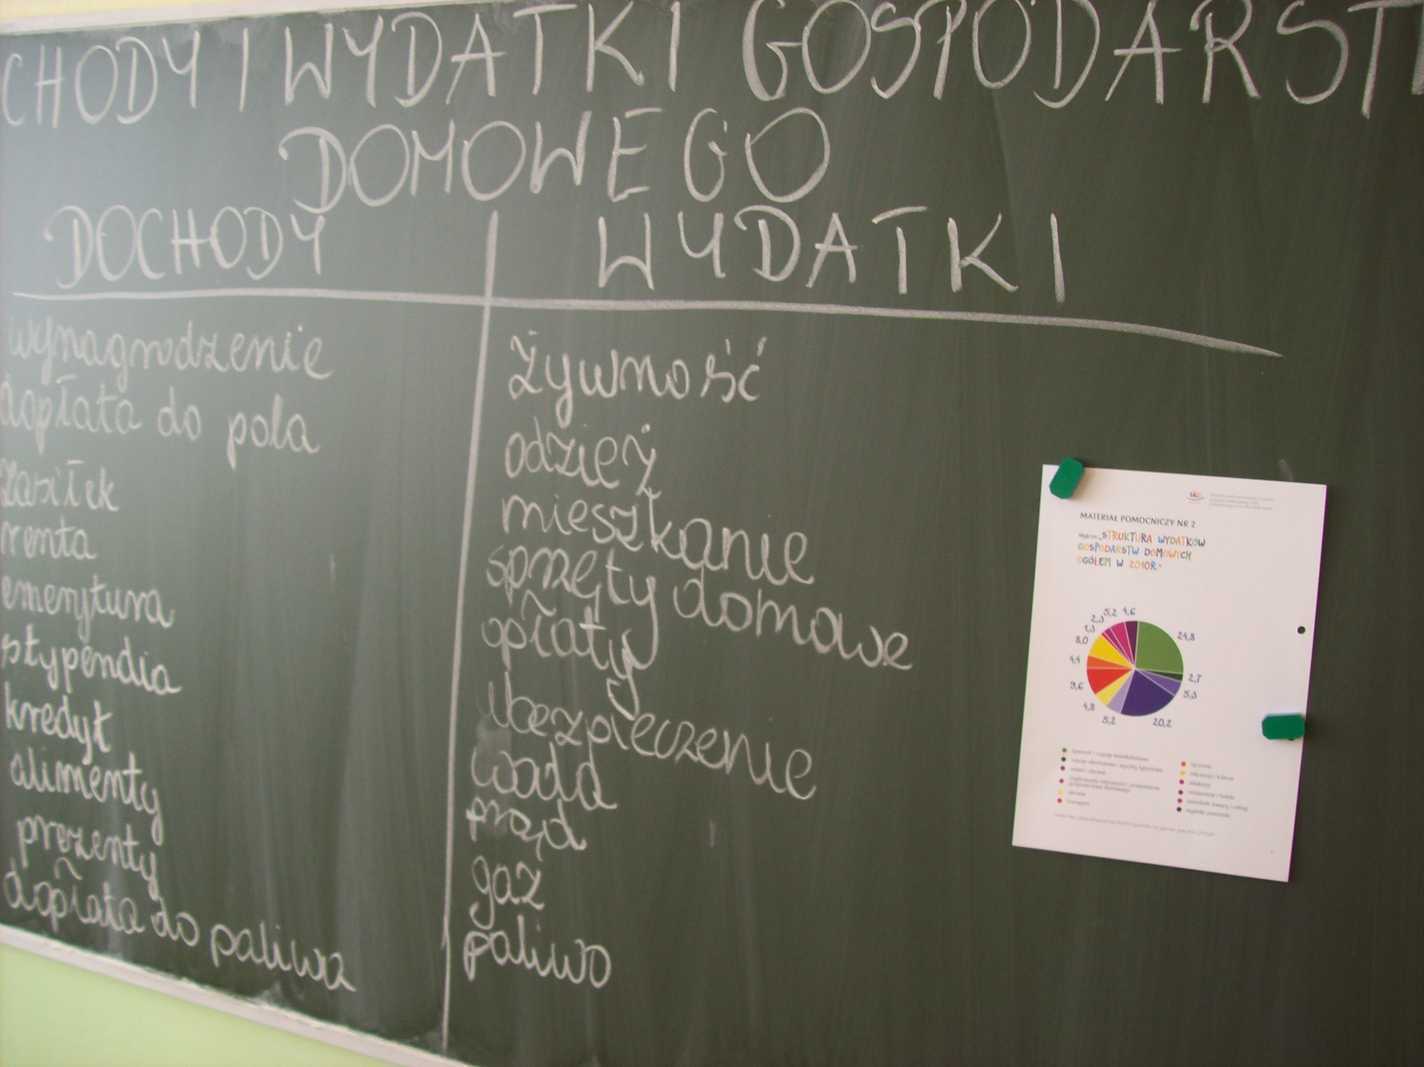 CHODY I WYDATKI GOSPODARST
DOMOWEGO
DOCHODY
wynagrodzenie
dopłata do pola
zasiłek
renta
emerytura
stypendia
kredyt
alimenty
prezenty
dopłata do paliwa
WYDATKI
żywność
odzież
mieszkanie
sprzęty domowe
opłaty
ubezpieczenie
woda
prąd
gaz
paliwo
MATERIAŁ POMOCNICZY NR 2
Wykres „STRUKTURA WYDATKÓW
GOSPODARSTW DOMOWYCH
OGÓŁEM W 2010R."
24,8
2,7
5,3
20,2
5,2
4,8
9,6
4,4
8,0
5,2
4,6